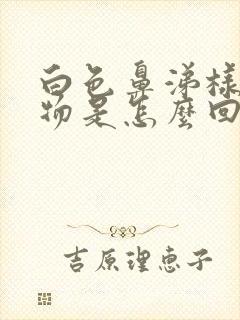 白色鼻涕樣
物是怎麼回
吉原理恵子